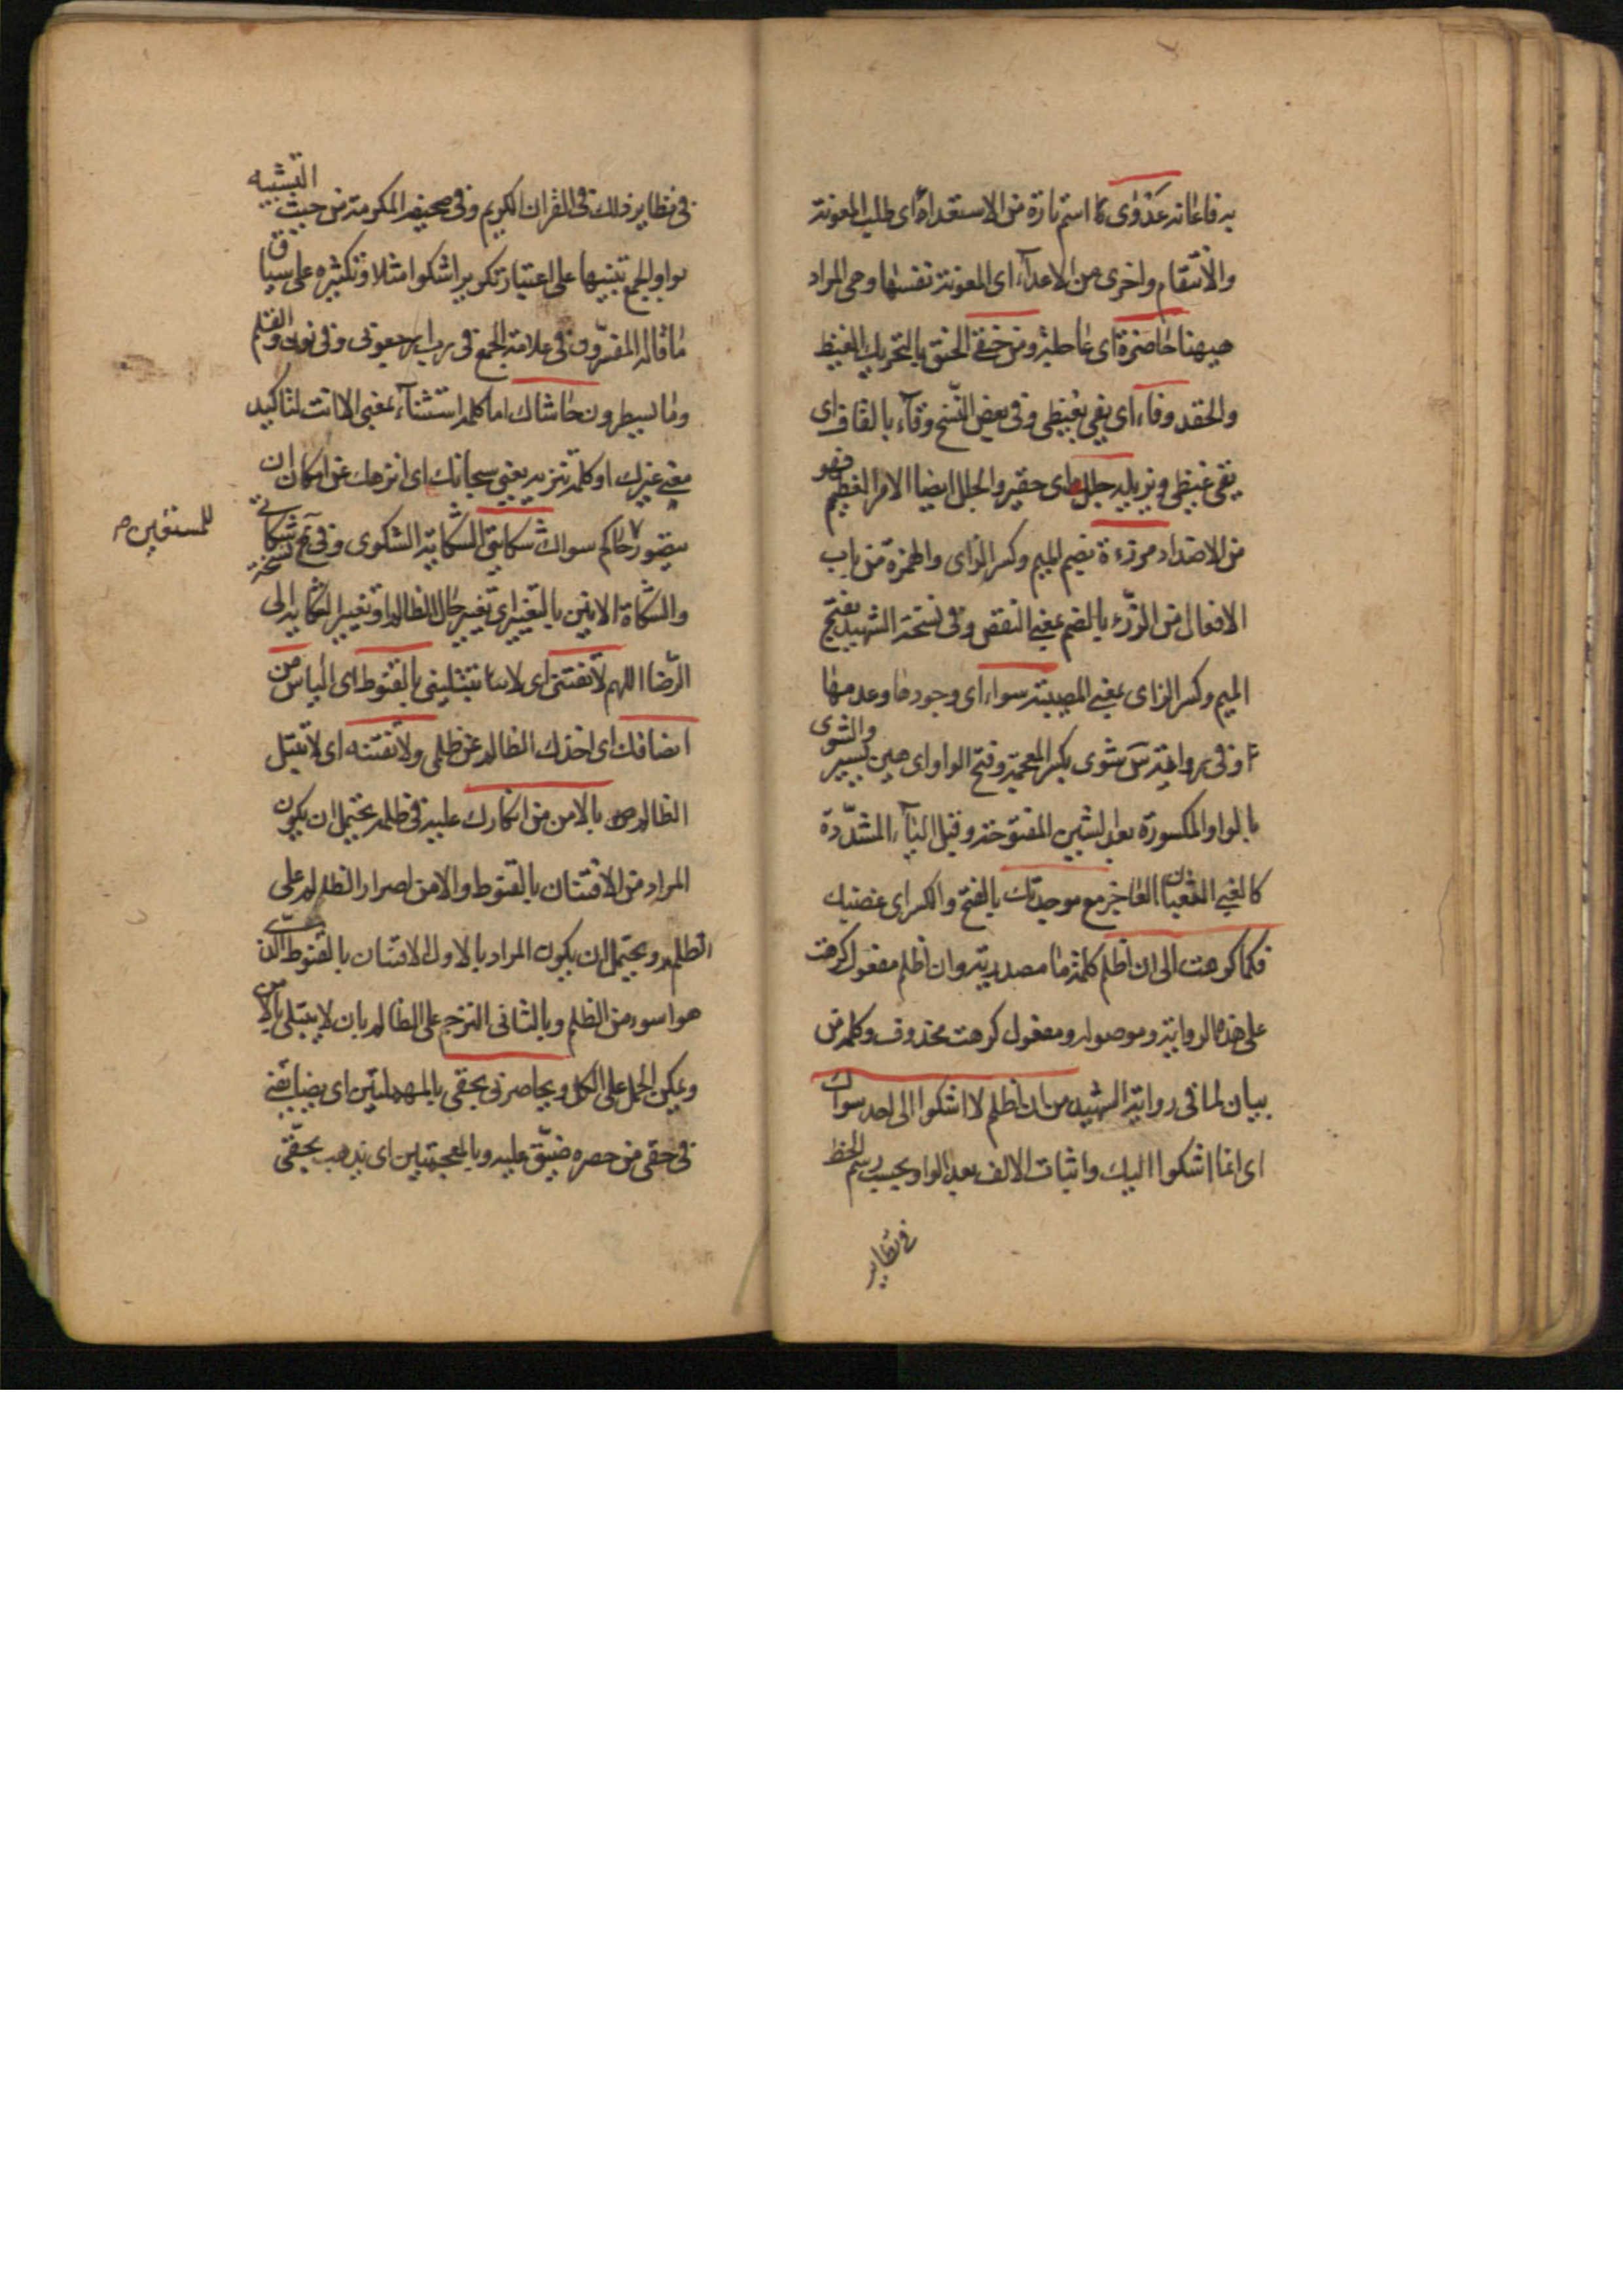 به فاعانه عَدْوٰى كا اسم تارة من الاستعداء اى طلب المعونة
والانتقام واخرى من الاعداء اى المعونة نفسها وهى المراد
هيهنا حاضرة اى عاجلة ومن حنقى الحنق بالتحريك الغيظ
والحقد وفاء اى يفى بغيظى وفى بعض النسخ وقاء بالقاف اى
يقى غيظى ويزيله جلل اى حقير والجلل ايضا الامر العظيم فهو
من الاضداد مرزءة بضم الميم وكسر الزاى والهمزة من باب
الافعال من الرزء بالضم بمعنى النقص وفى نسخة الشهيد بفتح
الميم وكسر الزاى بمعنى المصيبة سواء اى وجودها وعدمها
وفى رواية س شوى بكسر المعجمة وفتح الواو اى هين يسير والشوى
بالواو المكسورة بعد الشين المفتوحة وقبل الياء المشددة
كالغنى العاجز مع موجدتك بالفتح والكسر اى غضبك
فكما كرهت الى ان اظلم كلمة ما مصدرية وان اظلم مفعول كرهت
على هذه الرواية وموصولة ومفعول كرهت محذوف وكلمة من
بيان لما فى رواية الشهيد من ان اظلم لا اشكوا الى احد سواك
اى انما اشكوا اليك واثبات الالف بعد الواو بحسب رسم الخط
فى نظاير
فى نظاير ذلك فى القران الكريم وفى صحيفة المكرمة من حيث التشبيه
بواو الجمع تنبيها على اعتبار تكرير اشكوا مثلا وتكثيره على سياق
ما قاله المفسرون فى علامة الجمع فى رب ارجعونى وفى نون والقلم
وما يسطرون حاشاك اما كلمة استثناء بمعنى الا انت لتاكيد
معنى غيرك او كلمة تنزيه بمعنى سبحانك اى انزهك عن امكان ان
يتصور حاكم سواك شكايتى الشكاية الشكوى وفى نسخة شكاتى
للمستغيثين
والشكاة الانين بالتغيير اى تغيير حال الظالم او تغيير الشكاية الى
الرضا اللهم لا تفتنى اى لا تبتلينى بالقنوط اى الياس من
انصافك اى اخذك الظالم عن ظلمى ولا تفتنه اى لا تبتل
الظالم بالامن من انكارك عليه فى ظلمه يحتمل ان يكون
المراد من الافتتان بالقنوط والامن اصرار الظالم على
الظلم ويحتمل ان يكون المراد بالاول الافتتان بالقنوط الذى
هو اسوء من الظلم وبالثانى الترحم على الظالم بان لا يبتلى بالامن
ويمكن الحمل على الكل ويحاصرنى بحقى بالمهملتين اى يضايقنى
فى حقى من حصره ضيق عليه وبالمعجمتين اى يذهب بحقى